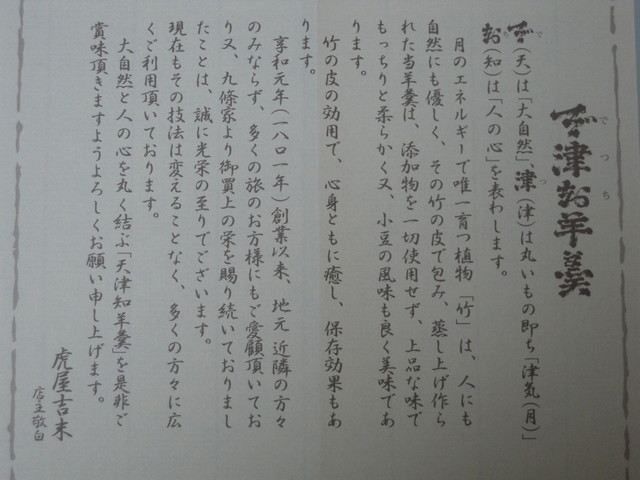 天津知羊羹
でつち
天(天)は「大自然」、津(津)は丸いもの即ち「津気(月)」
知(知)は「人の心」を表わします。
月のエネルギーで唯一育つ植物「竹」は、人にも
自然にも優しく、その竹の皮で包み、蒸し上げ作ら
れた当羊羹は、添加物を一切使用せず、上品な味で
もっちりと柔らかく又、小豆の風味も良く美味であ
ります。
竹の皮の効用で、心身ともに癒し、保存効果もあ
ります。
享和元年(一八〇一年)創業以来、地元 近隣の方々
のみならず、多くの旅のお方様にもご愛顧頂いてお
り又、九條家より御買上の栄を賜り続いておりまし
たことは、誠に光栄の至りでございます。
現在もその技法は変えることなく、多くの方々に広
くご利用頂いております。
大自然と人の心を丸く結ぶ「天津知羊羹」を是非ご
賞味頂きますようよろしくお願い申し上げます。
虎屋吉末
店主敬白